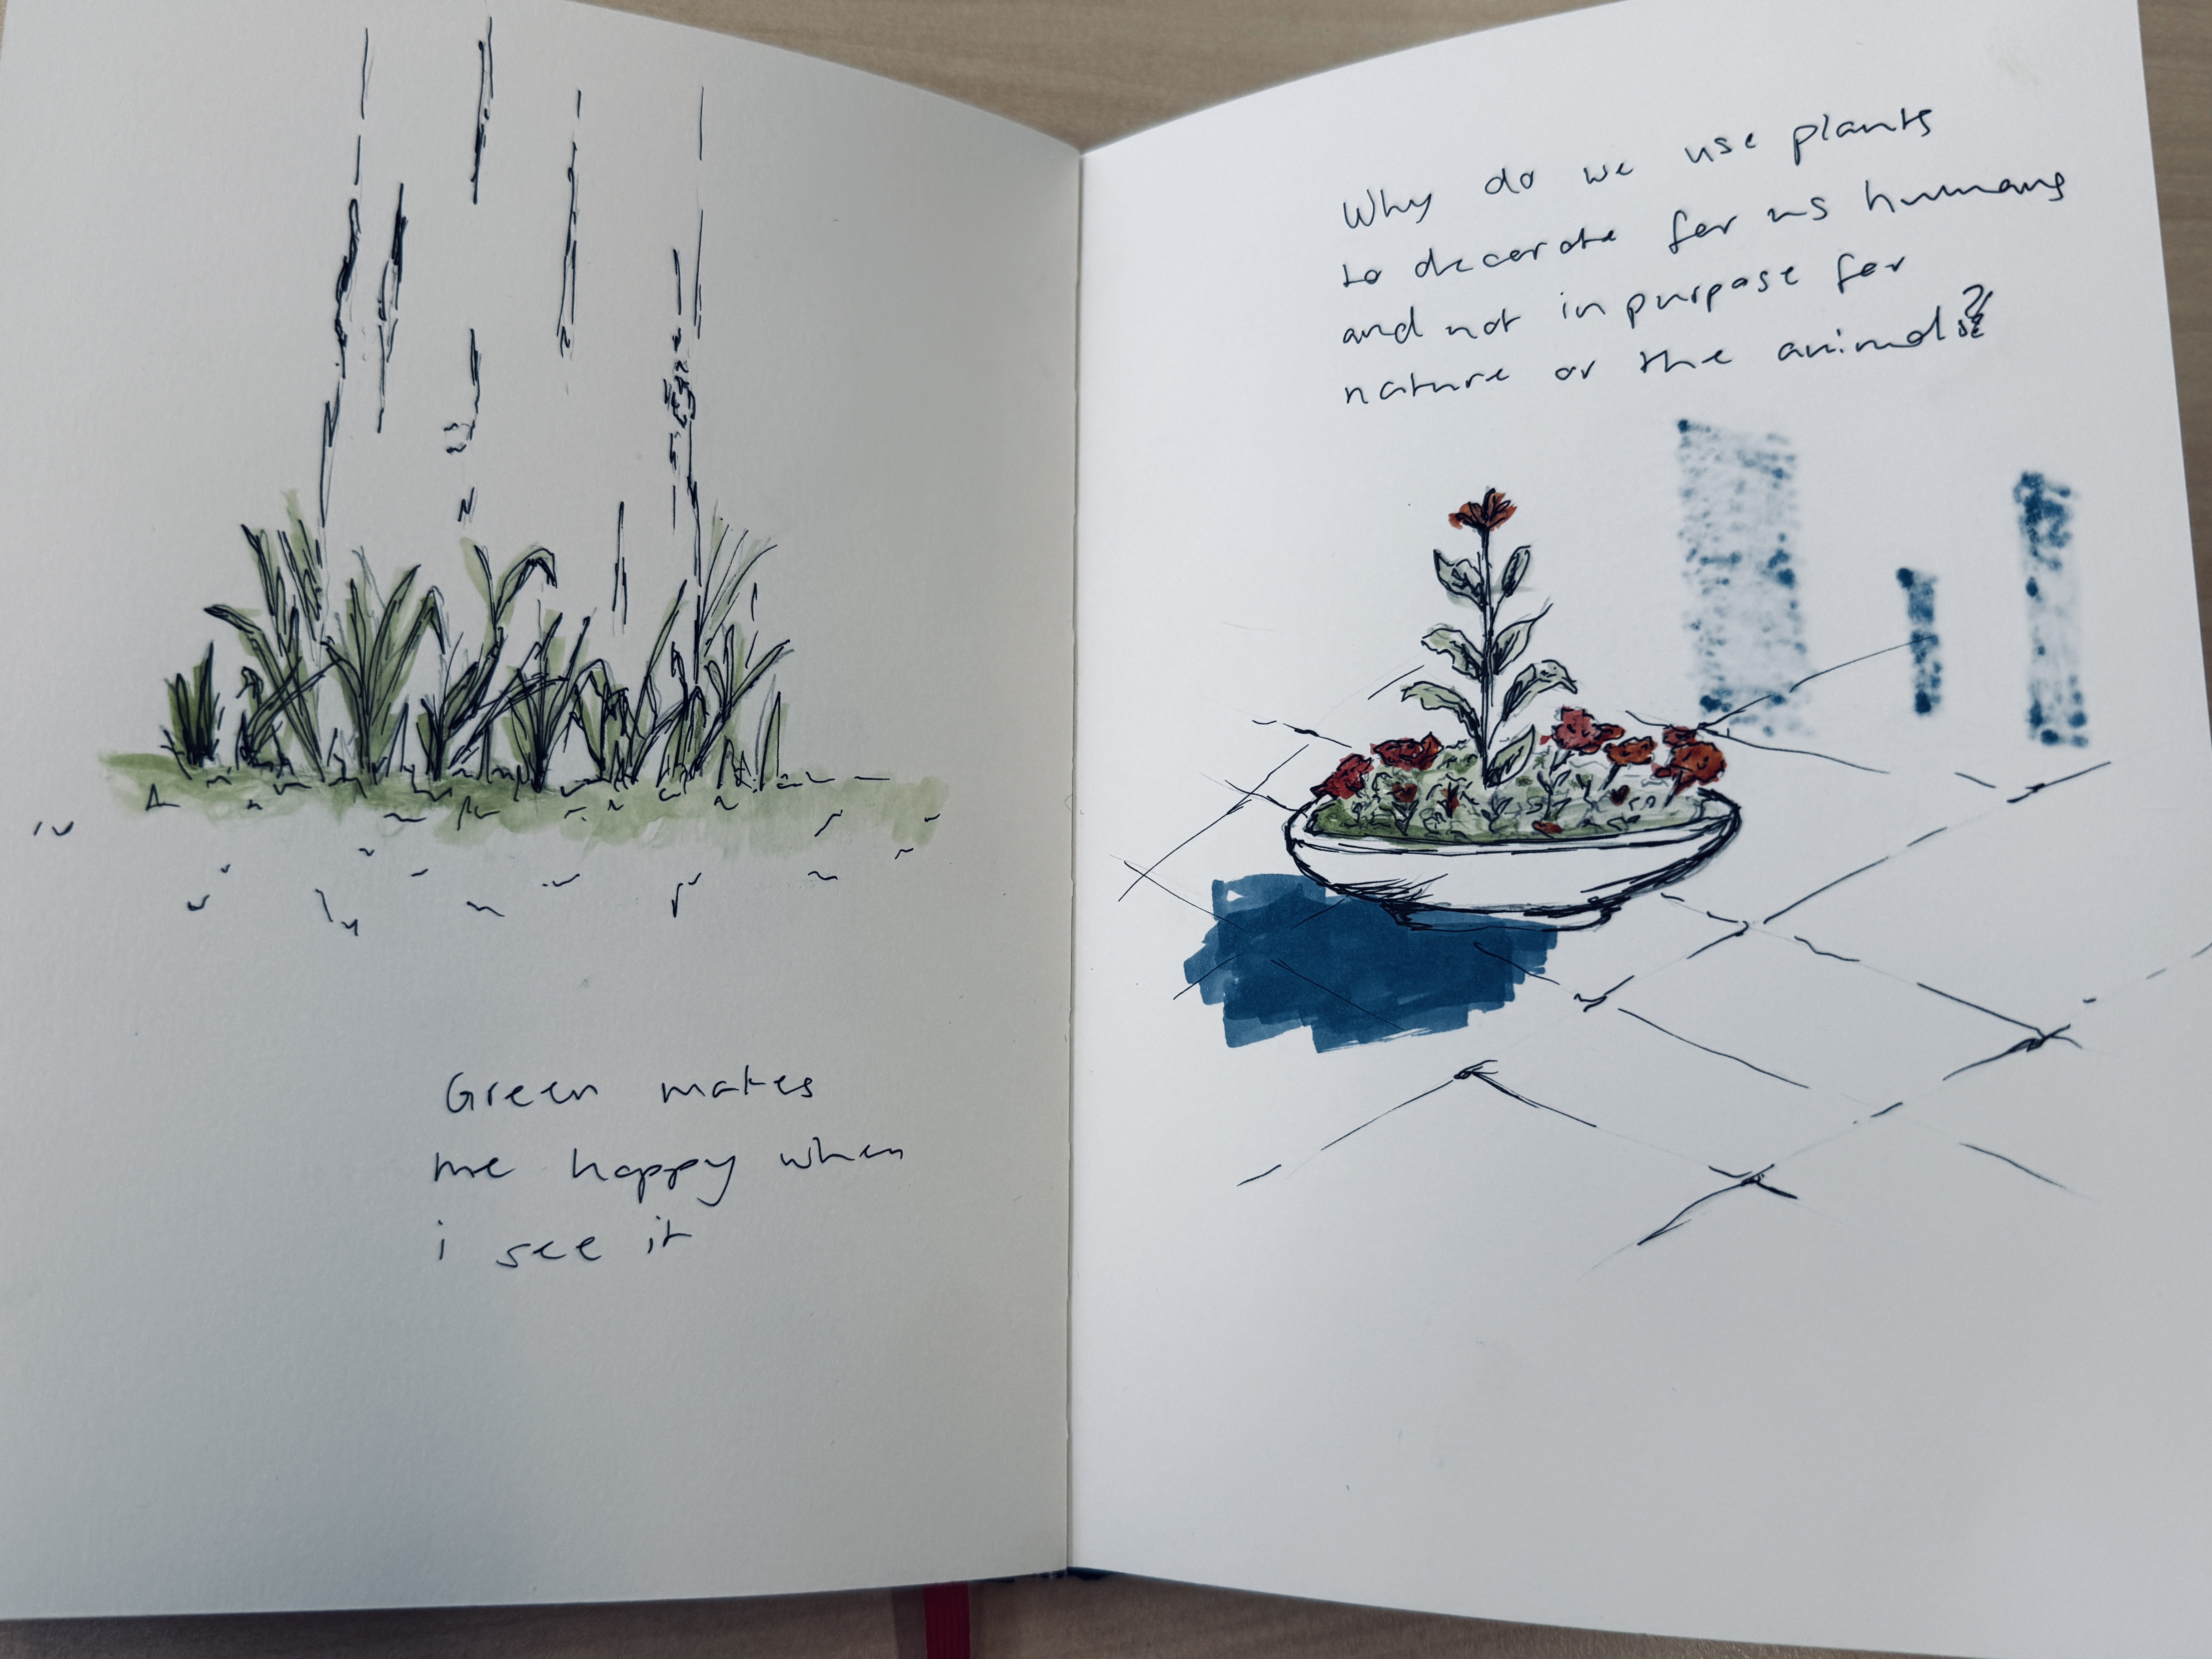 Green makes
me happy when
i see it
Why do we use plants
to decorate for us humans
and not in purpose for
nature or the animals?